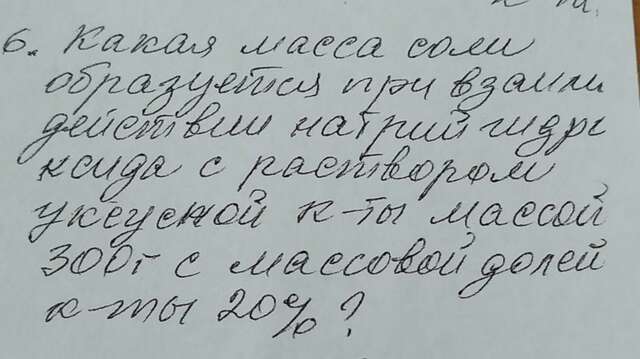 6. Какая масса соли
образуется при взаим
действии натрий гидро
ксида с раствором
уксусной к-ты массой
300г с массовой долей
к-ты 20%?